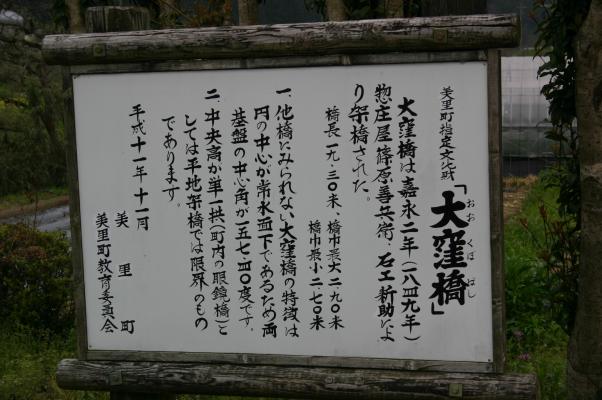 美里町指定文化財
「大窪橋」
おおくぼばし
大窪橋は嘉永二年(一八四九年)
惣庄屋篠原善兵衛、石工新助によ
り架橋された。
橋長一九、三〇米、橋巾最大二、九〇米
橋巾最小二、七〇米
一、他橋にみられない大窪橋の特徴は
円の中心が常水面下であるため両
基盤の中心角が一五七、四〇度です。
二、中央高が単一拱(町内の眼鏡橋)と
しては平地架橋では限界のもの
であります。
平成十一年十一月
美里町
美里町教育委員会